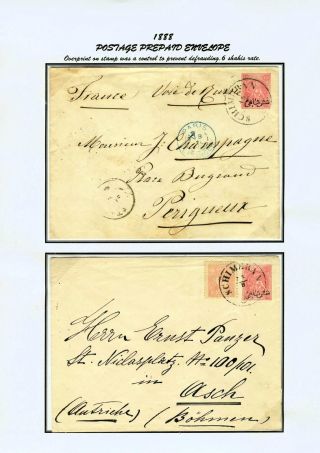 1888
POSTAGE PREPAID ENVELOPE
Overprint on stamp was a control to prevent defrauding. 6 shahis rate.
France Voie de Russie
SCHIMERAN
PARIS
Monsieur J. Champagne
Rue Bugeaud
Perigueux
SCHIMERAN
Herrn Ernst Panzer
St. Niclasplatz, No 100/01.
in
Asch
(Autriche) (Böhmen)